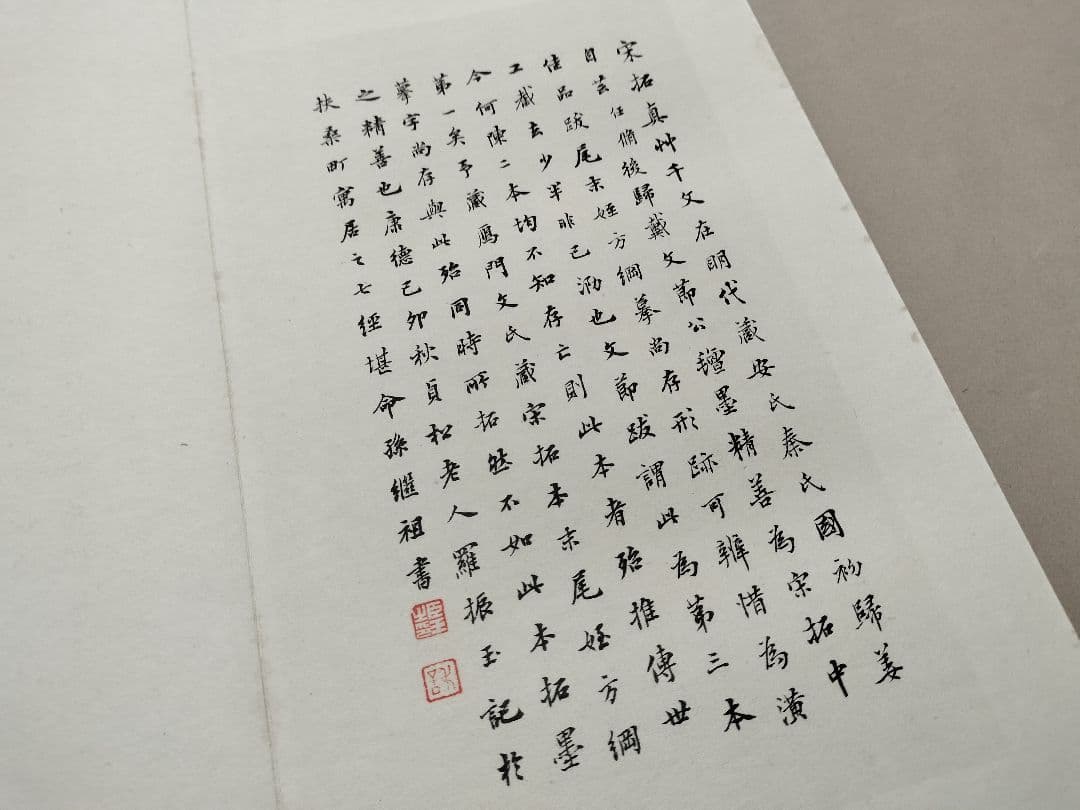 宋拓真艸千文在明代藏安氏秦氏國初歸姜
自芸任脩後歸戴文節公氊墨精善為宋拓中
佳品跋尾末姪方綱摹尚存形跡可辨惜為潢
工截去少半非已泐也文節跋謂此為第三本
今何陳二本均不知存亡則此本者殆推傳世
第一矣予藏鴈門文氏藏宋拓本末尾姪方綱
摹字尚存與此殆同時所拓然不如此本拓墨
之精善也康德己卯秋貞松老人羅振玉記於
扶桑町寓居之七經堪命孫繼祖書